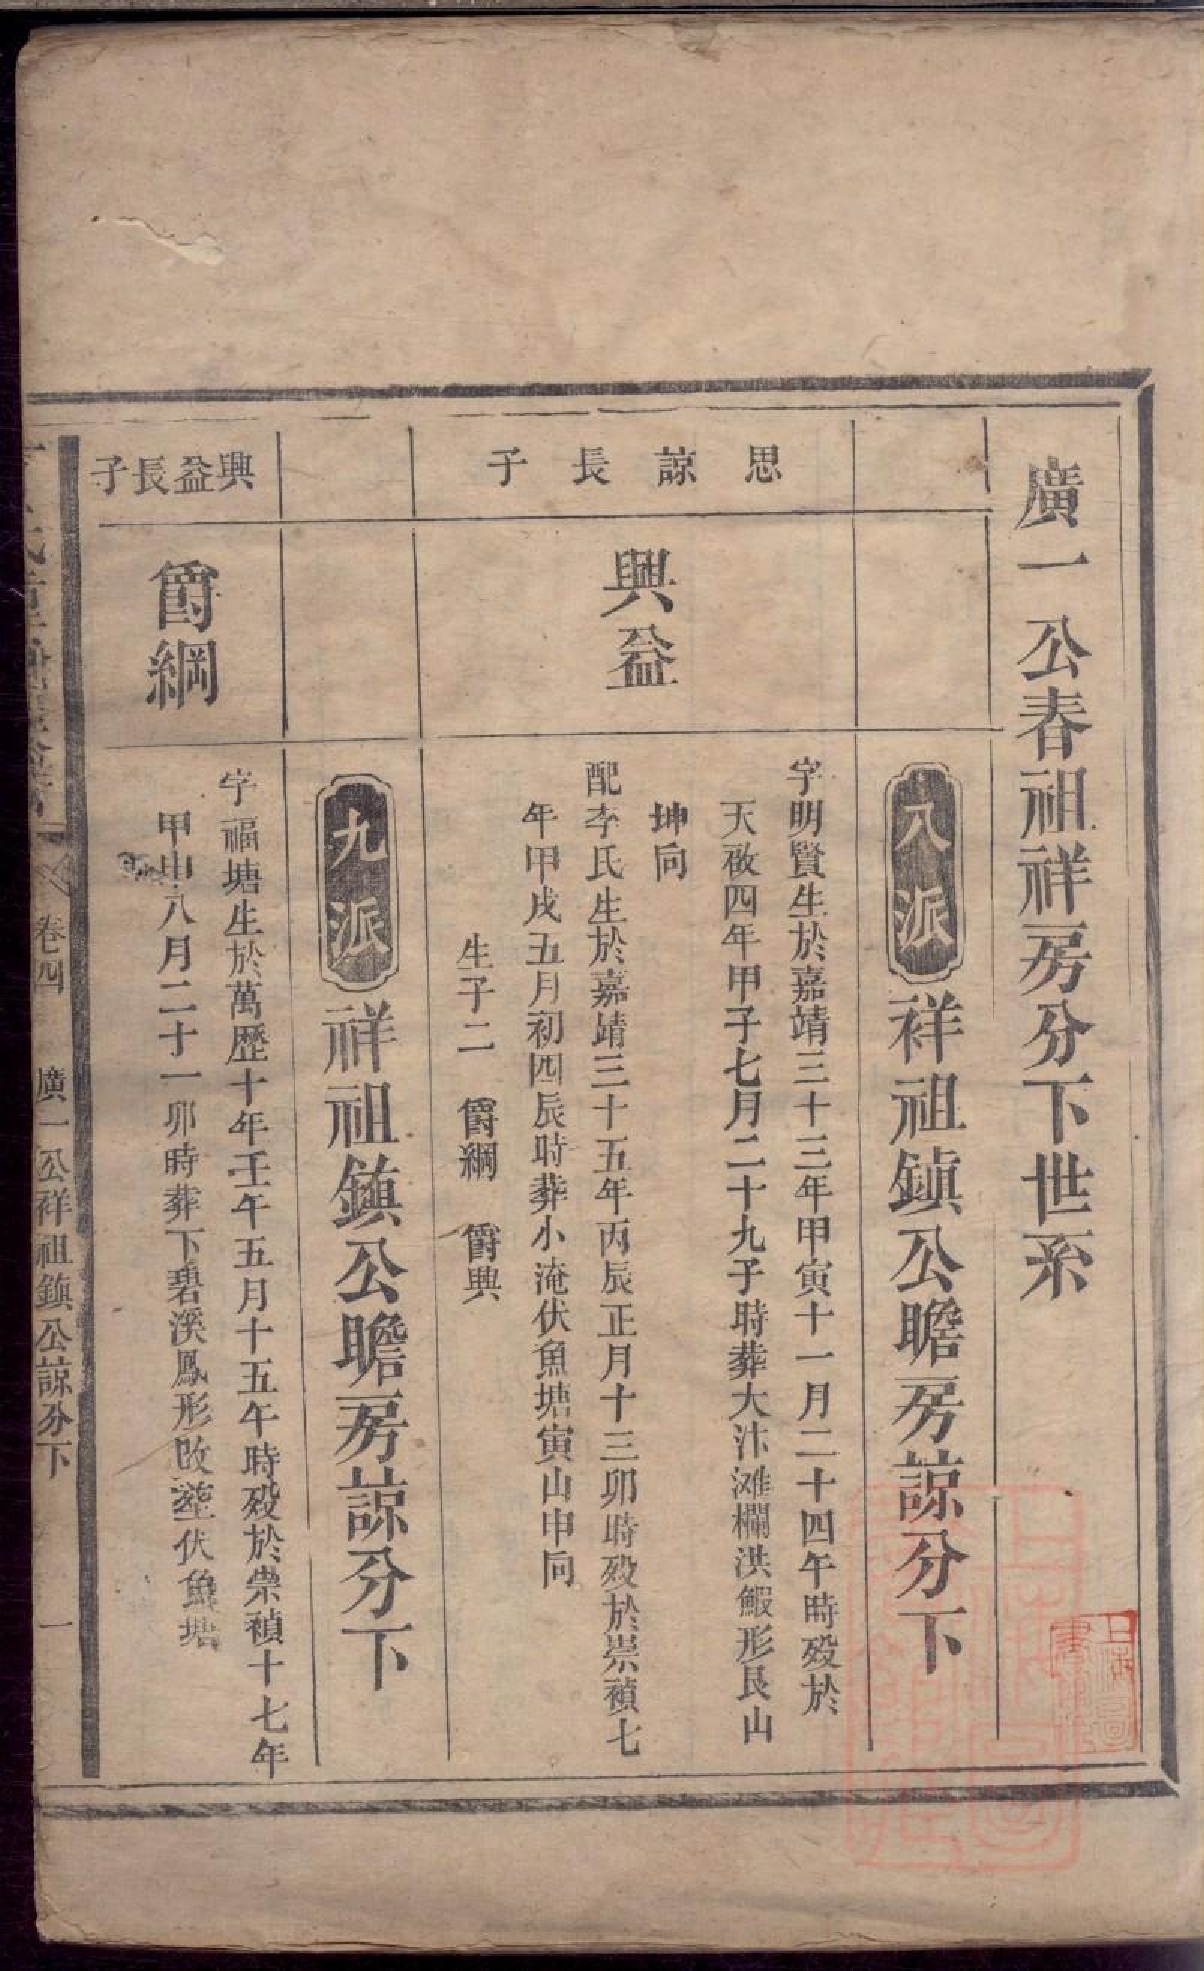 廣一公春祖祥房分下世系
八派
祥祖鎮公瞻房諒分下
思諒長子
興益
字明賢生於嘉靖三十三年甲寅十一月二十四午時殁於
天啟四年甲子七月二十九子時葬大汴滩欄洪鰕形艮山
坤向
配李氏生於嘉靖三十五年丙辰正月十三卯時殁於崇禎七
年甲戌五月初四辰時葬小淹伏魚塘寅山申向
生子二 爵綱 爵興
九派
祥祖鎮公瞻房諒分下
興益長子
爵綱
字福塘生於萬歷十年壬午五月十五午時殁於崇禎十七年
甲申八月二十一卯時葬下碧溪鳳形改塟伏魚塘
卷四 廣一公祥祖鎮公諒分下 一